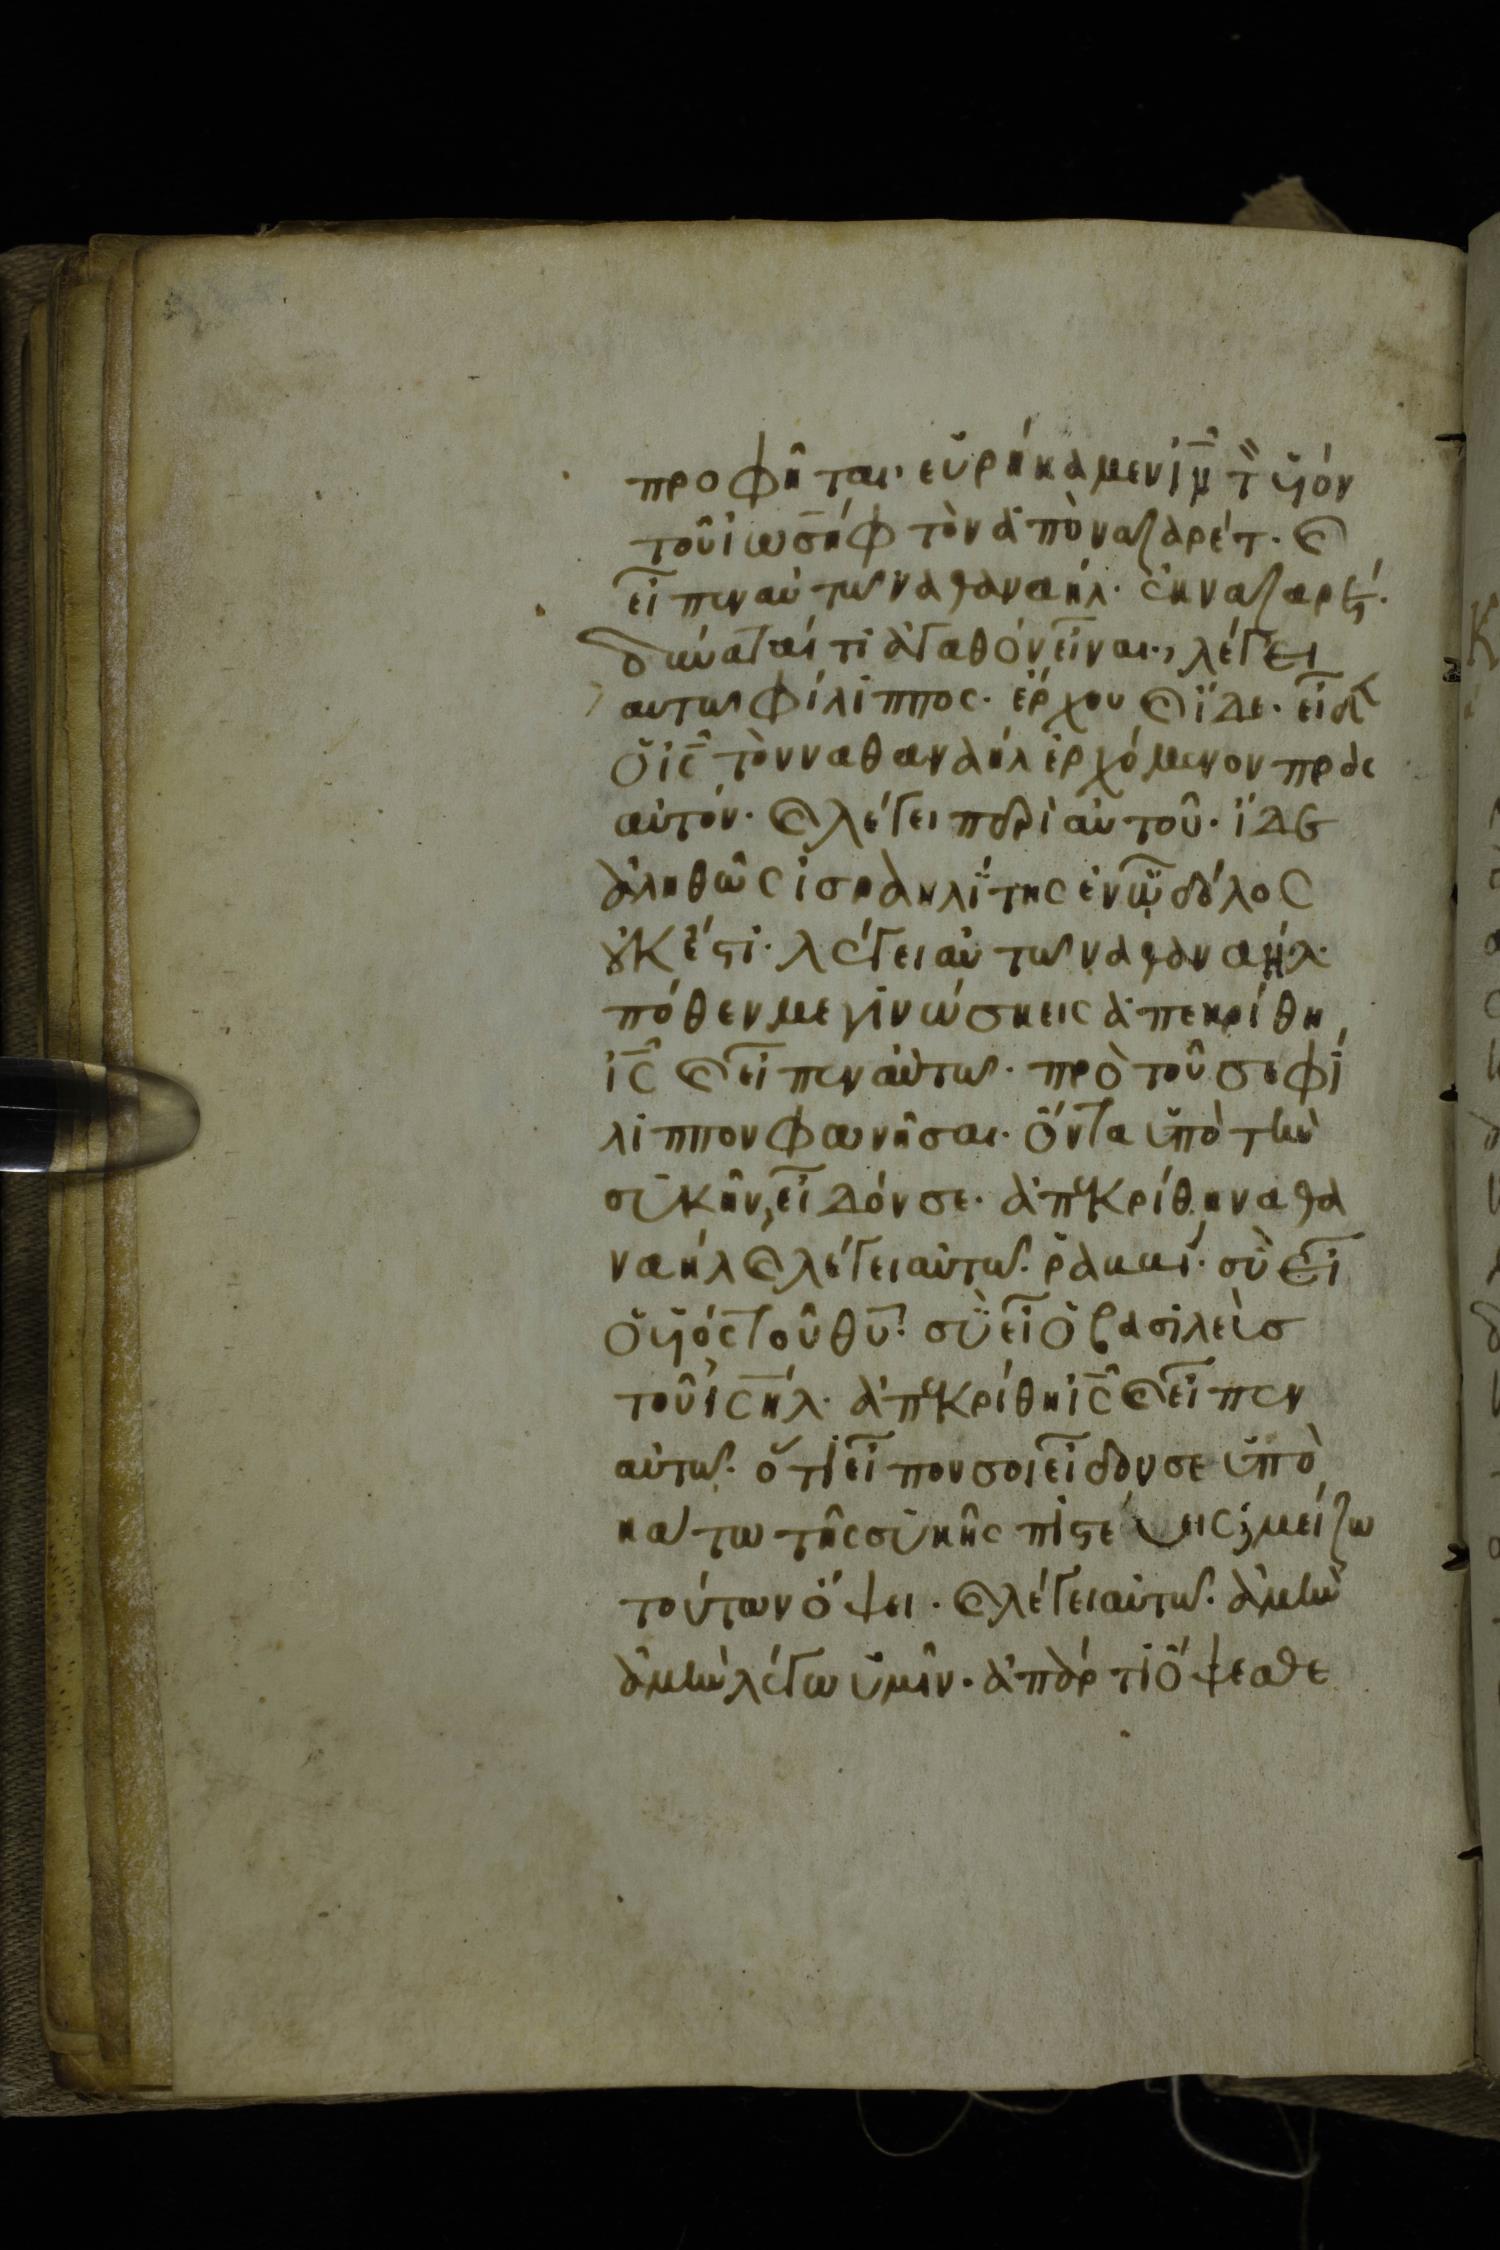 προφῆται· εὑρήκαμεν ἰν̄ τ̄ υἱόν
τοῦ ἰωσὴφ τὸν ἀπὸ ναζαρέτ· ϗ
εἶπεν αὐτῶ ναθαναήλ· ἐκ ναζαρέτ·
δύναταί τι ἀγαθόν εἶναι, λέγει
αυτω φίλιππος· ἔρχου ϗ ἴδε· εἶδεν
ὁ ἰς̄ τὸν ναθαναήλ ἐρχόμενον πρὸς
αὐτόν· ϗ λέγει περὶ αὐτοῦ· ἴδε
ἀληθῶς ἰσραηλΐτης ἐν ὧ δόλος
οὐκ ἔστι· λέγει αὐτω ναθαναήλ·
πόθεν με γινώσκεις ἀπεκρίθη
ἰς̄ ϗ εἶπεν αὐτω· πρὸ τοῦ σε φί
λιππον φωνῆσαι· ὄντα ὑπὸ τὴν
συκῆν, εἶδόν σε· ἀπεκρίθη ναθα
ναήλ ϗ λέγει αὐτω· ῥαββί· σὺ εἶ
ὁ υἱός τοῦ θῡ· σὺ εἶ ὁ βασιλεὺσ
τοῦ ἰσ̄ήλ· ἀπεκρίθη ἰς̄ ϗ εἶπεν
αὐτω· ὅτι εἶπον σοι εἶδόν σε ὑπὸ
κάτω τῆς συκῆς πιστεύεις; μείζω
τούτων ὄψει· ϗ λέγει αὐτω· ἀμὴν
ἀμὴν λέγω ὑμῖν· ἀπάρτι ὄψεσθε